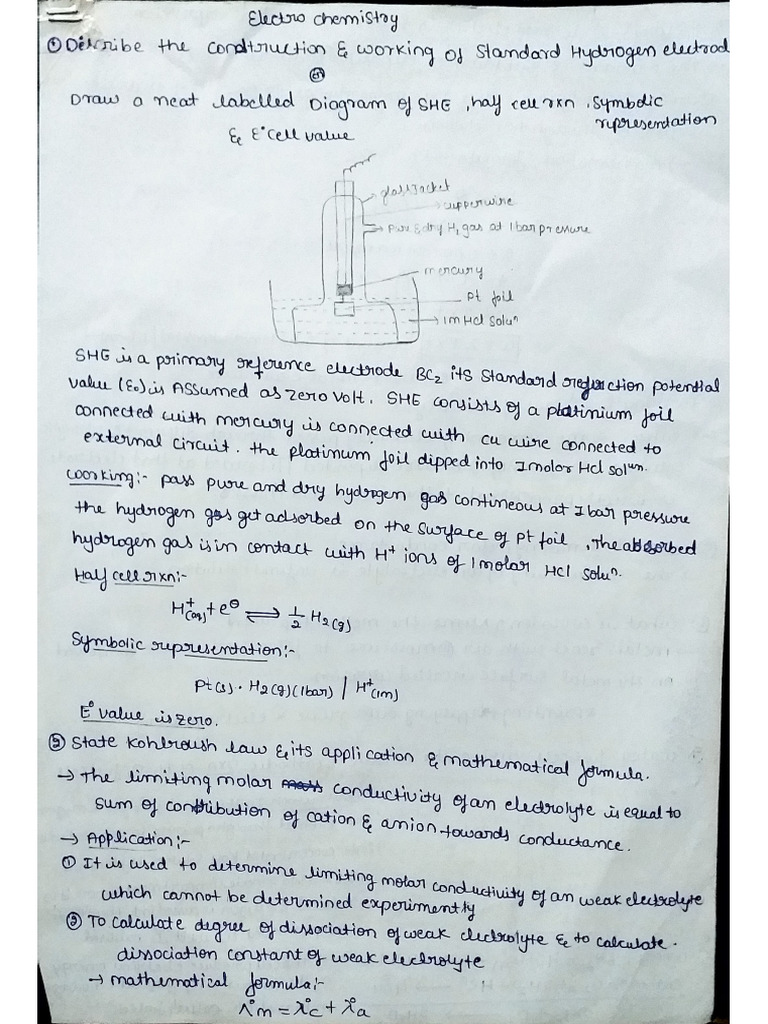 Electro chemistry
① Describe the condtruction & working of Standard Hydrogen electrod
or
Draw a neat labelled Diagram of SHE, half cell rxn, Symbolic
representation
& E° cell value
glass jacket
cupper wire
pure & dry H2 gas at 1 bar pressure
mercury
pt foil
1m Hcl Soluⁿ
SHE is a primary reference electrode BCz its Standard reduction potential
value (E0) is Assumed as zero Volt. SHE consists of a platinium foil
connected with mercury is connected with cu wire connected to
external circuit. the platinum foil dipped into 1 molar Hcl soluⁿ.
woorking:- pass pure and dry hydrogen gas contineous at 1 bar pressure
the hydrogen gas get adsorbed on the surface of pt foil, The absorbed
hydrogen gas is in contact with H⁺ ions of 1 molar Hcl soluⁿ.
Half cell rxn:-
H⁺(aq) + e⊖ ⇌ 1/2 H2(g)
Symbolic representation:-
Pt(s) . H2(g)(1bar) | H⁺(1m)
E° value is zero.
② State Kohlroush law & its application & mathematical formula.
→ The limiting molar conductivity of an electrolyte is equal to
sum of contribution of cation & anion towards conductance.
→ Application:-
① It is used to determine limiting molar conductivity of an weak electrolyte
which cannot be determined experimently
② To calculate degree of dissociation of weak electrolyte & to calculate.
dissociation constant of weak electrolyte
→ mathematical formula:-
Λ°m = λ°c + λ°a